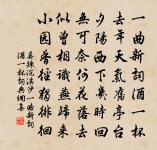 一曲新詞酒一杯
去年天氣舊亭台
夕陽西下幾時回
無可奈何花落去
似曾相識燕歸來
小園香徑獨徘徊
晏殊浣溪沙一曲新詞
酒一杯詞典網